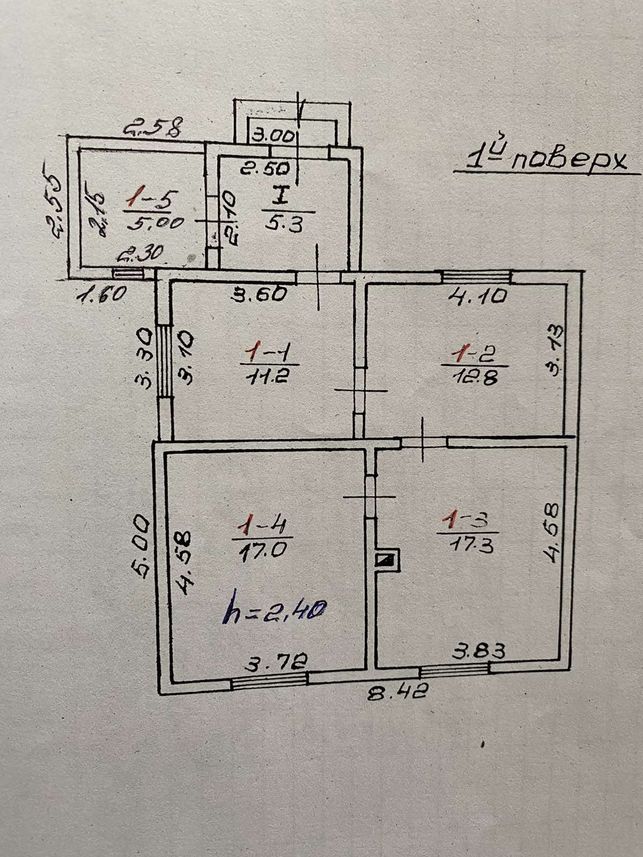 2.58
3.00
1й поверх
2.50
2.55
2.15
1-5
5.00
2.10
I
5.3
2.30
1.60
3.60
4.10
3.30
3.10
1-1
11.2
1-2
12.8
3.13
5.00
4.58
1-4
17.0
1-3
17.3
4.58
h=2,40
3.72
3.83
8.42